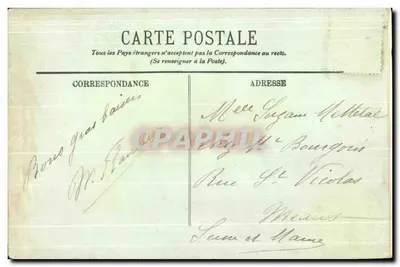 CARTE POSTALE
Tous les Pays étrangers n'acceptent pas la Correspondance au recto.
(Se renseigner à la Poste).
CORRESPONDANCE
ADRESSE
Bons gros baisers
W.
Melle Suzanne
Chez Mr Bourgoris
Rue St Nicolas
Meaux
Seine et Marne
Prix-Carte